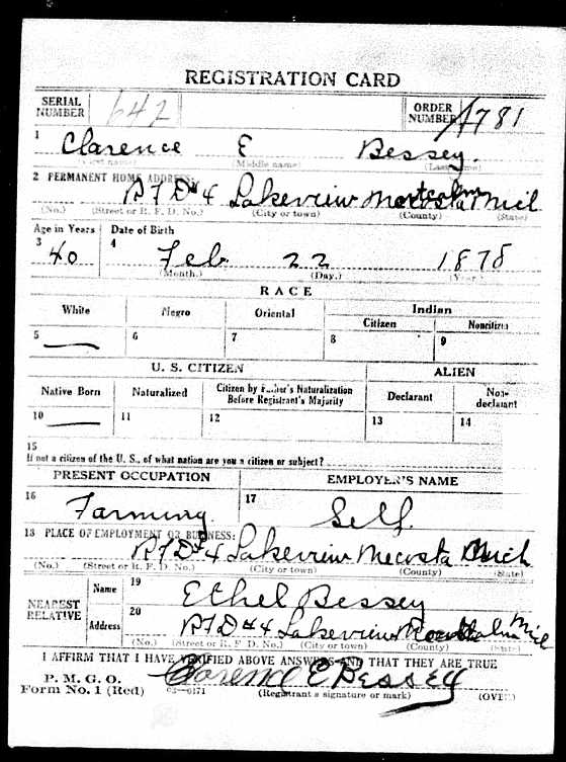 REGISTRATION CARD
SERIAL NUMBER 642 ORDER NUMBER 1781
1 Clarence E Bessey.
(First name) (Middle name) (Last name)
2 PERMANENT HOME ADDRESS:
RFD #4 Lakeview Mich
(No.) (Street or R. F. D. No.) (City or town) (County) (State)
Age in Years Date of Birth
3 40 4 Feb 22 1878
(Month.) (Day.) (Year.)
RACE
White Negro Oriental Indian
Citizen Noncitizen
5 6 7 8 9
U. S. CITIZEN ALIEN
Native Born Naturalized Citizen by Father's Naturalization Before Registrant's Majority Declarant Non-declarant
10 11 12 13 14
15
If not a citizen of the U. S., of what nation are you a citizen or subject?
PRESENT OCCUPATION EMPLOYER'S NAME
16 Farming 17 Self.
18 PLACE OF EMPLOYMENT OR BUSINESS:
RFD #4 Lakeview Mecosta Mich
(No.) (Street or R. F. D. No.) (City or town) (County) (State)
NEAREST RELATIVE Name 19 Ethel Bessey
Address 20 RFD #4 Lakeview Mich
(No.) (Street or R. F. D. No.) (City or town) (County) (State)
I AFFIRM THAT I HAVE VERIFIED ABOVE ANSWERS AND THAT THEY ARE TRUE
P. M. G. O.
Form No. 1 (Red) 03—6171 Clarence E Bessey
(Registrant's signature or mark) (OVER)